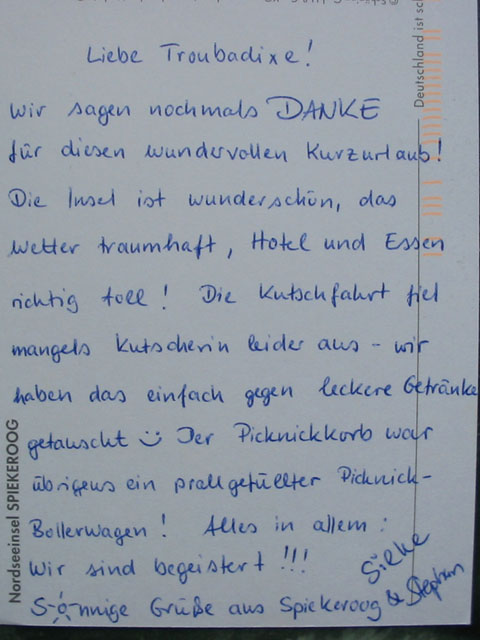 Liebe Troubadixe!
Wir sagen nochmals DANKE
für diesen wundervollen Kurzurlaub!
Die Insel ist wunderschön, das
Wetter traumhaft, Hotel und Essen
richtig toll! Die Kutschfahrt fiel
mangels Kutscherin leider aus - wir
haben das einfach gegen leckere Getränke
getauscht ☺ Der Picknickkorb war
übrigens ein prallgefüllter Picknick-
Bollerwagen! Alles in allem:
Wir sind begeistert!!!
Sonnige Grüße aus Spiekeroog
Silke
& Stephan
Nordseeinsel SPIEKEROOG
Deutschland ist